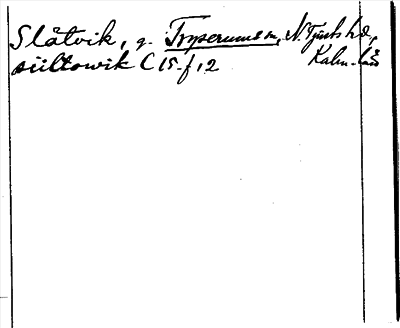 Slåtvik, g. Torpserumss sn, N. Tjusts hd,
Kalm. län
siiltowik C 15 f 12